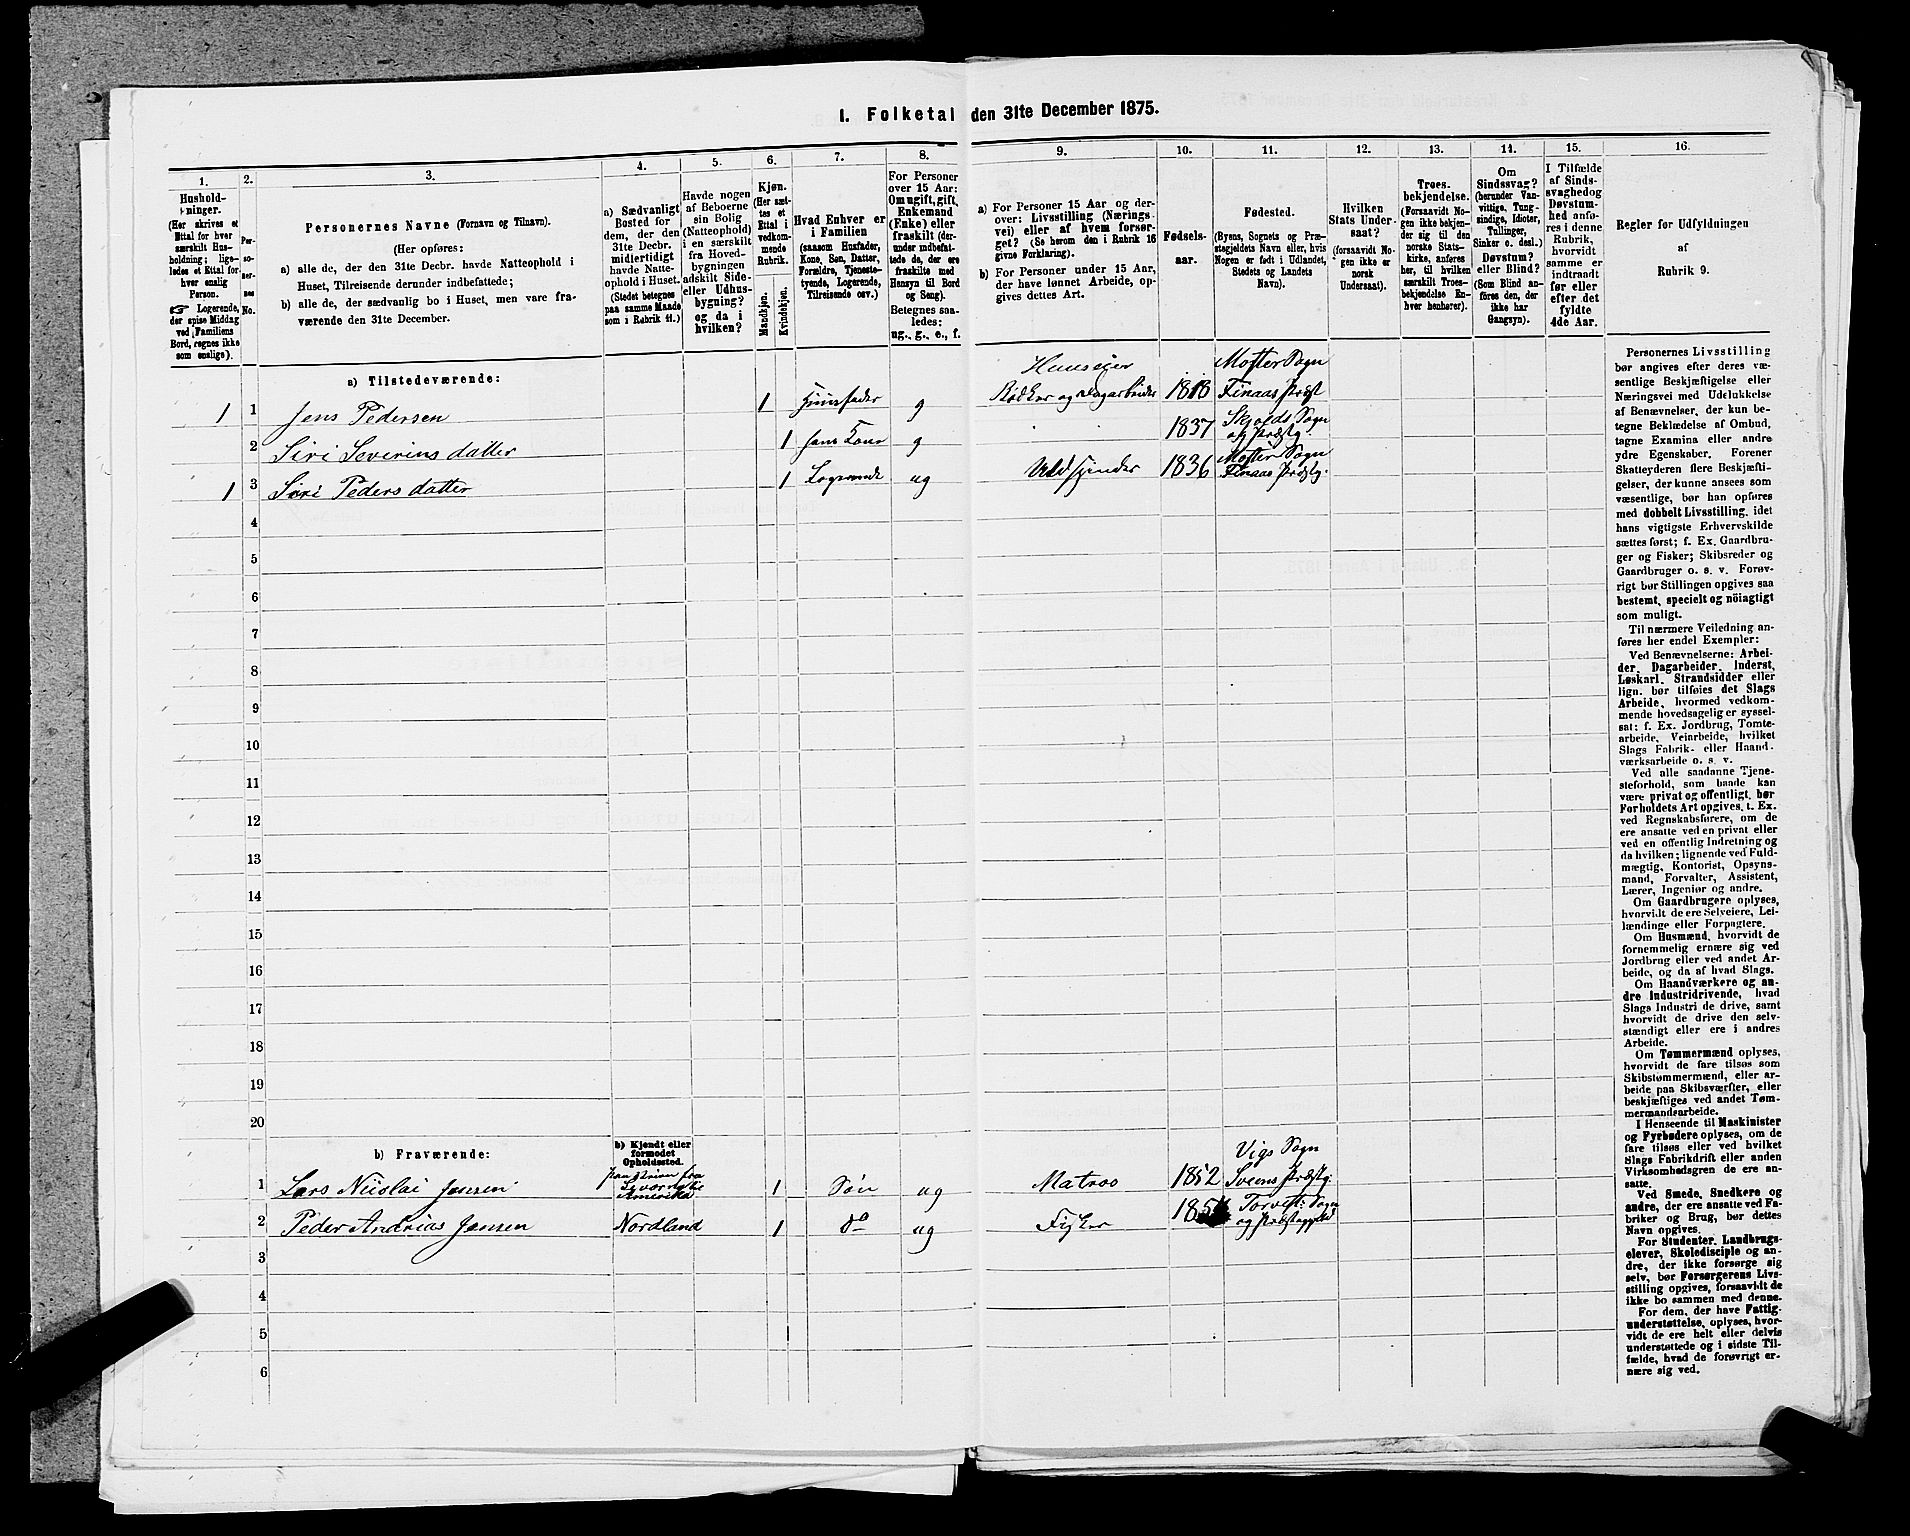 I. Folketal den 31te December 1875.
1.
2.
3.
4.
5.
6.
7.
8.
9.
10.
11.
12.
13.
14.
15.
16.
Hushold-
ninger.
(Her skrives et
Ettal for hver
særskilt Hus-
holdning; lige-
ledes et Ettal for
hver enslig
Person.
☞ Logerende,
der spise Middag
ved Familiens
Bord, regnes ikke
som enslige).
Per-
so-
ner-
nes
No.
Personernes Navne (Fornavn og Tilnavn).
(Her opføres:
a) alle de, der den 31te Decbr. havde Natteophold i
Huset, Tilreisende derunder indbefattede;
b) alle de, der sædvanlig bo i Huset, men vare fra-
værende den 31te December.
a) Sædvanligt
Bosted for
dem, der den
31te Decbr.
midlertidigt
havde Natte-
ophold i Huset.
(Stedet betegnes
paa samme Maade
som i Rubrik 11.)
Havde nogen
af Beboerne
sin Bolig
(Natteophold)
i en særskilt
fra Hoved-
bygningen
adskilt Side-
eller Udhus-
bygning?
og da i
hvilken?
Kjøn.
(Her sæt-
tes et
Ettal i
vedkom-
mende
Rubrik.
Mandkjøn.
Kvindekjøn.
Hvad Enhver er
i Familien
(saasom Husfader,
Kone, Søn, Datter,
Forældre, Tjeneste-
tyende, Logerende,
Tilreisende osv.)
For Personer
over 15 Aar:
Om ugift, gift,
Enkemand
(Enke) eller
fraskilt (der-
under indbefat-
tede de, der ere
fraskilte med
Hensyn til Bord
og Seng).
Betegnes saa-
ledes:
ug., g., e., f.
a) For Personer 15 Aar og der-
over: Livsstilling (Nærings-
vei) eller af hvem forsør-
get? (Se herom den i Rubrik 16
givne Forklaring).
b) For Personer under 15 Aar,
der have lønnet Arbeide, op-
gives dettes Art.
Fødsels-
aar.
Fødested.
(Byens, Sognets og Præ-
stegjeldets Navn eller, hvis
Nogen er født i Udlandet,
Stedets og Landets
Navn).
Hvilken
Stats Under-
saat?
(forsaavidt No-
gen ikke er
norsk
Undersaat).
Troes-
bekjendelse.
(Forsaavidt No-
gen ikke bekjen-
der sig til den
norske Stats-
kirke, anføres
her, til hvilken
særskilt Troes-
bekjendelse En-
hver henhører).
Om
Sindssvag?
(herunder Van-
vittige, Tung-
sindige, Idioter,
Tullinger,
Sinker o. desl.)
Døvstum?
eller Blind?
(Som Blind an-
føres den, der
ikke har
Gangsyn).
I Tilfælde
af Sinds-
svaghed og
Døvstum-
hed anfø-
res i denne
Rubrik,
hvorvidt
samme er
indtraadt
før eller
efter det
fyldte
4de Aar.
Regler for Udfyldningen
af
Rubrik 9.
a) Tilstedeværende:
1 1 Jens Pedersen 1 Huusfader g Huuseier
Bødker og Dagarbeider 1818 Moster Sogn
Finaas Præst
2 Siri Severins datter 1 hans Kone g 1837 Skjolds Sogn
og Præstg:
1 3 Siri Peders datter 1 Logerende ug Uldspinder 1836 Moster Sogn
Finaas Præstg:
4
5
6
7
8
9
10
11
12
13
14
15
16
17
18
19
20
b) Fraværende:
b) Kjendt eller
formodet
Opholdssted.
1 Lars Nicolai Jansen paa Reise fra
Amerika 1 Søn ug Matros 1852 Vigs Sogn
Sveens Præstg:
2 Peder Andreas Jansen Nordland 1 do ug Fisker Torvest: Sogn
og Præstegjeld
3
4
5
6
Personernes Livsstilling
bør angives efter deres væ-
sentlige Beskjæftigelse eller
Næringsvei med Udelukkelse
af Benævnelser, der kun be-
tegne Beklædelse af Ombud,
tagne Examina eller andre
ydre Egenskaber. Forener
Skatteyderen flere Beskjæfti-
gelser, der kunne ansees som
væsentlige, bør han opføres
med dobbelt Livsstilling, idet
hans vigtigste Erhvervskilde
sættes først; f. Ex. Gaardbru-
ger og Fisker; Skibsreder og
Gaardbruger o. s. v. Forøv-
rigt bør Stillingen opgives saa
bestemt, specielt og nöiagtigt
som muligt.
Til nærmere Veiledning an-
føres her endel Exempler:
Ved Benævnelserne: Arbei-
der, Dagarbeider, Inderst,
Løskarl, Strandsidder eller
lign. bør tilføies det Slags
Arbeide, hvormed vedkom-
mende hovedsagelig er syssel-
sat; f. Ex. Jordbrug, Tomte-
arbeide, Veiarbeide, hvilket
Slags Fabrik- eller Haand-
værksarbeide o. s. v.
Ved alle saadanne Tjene-
steforhold, som baade kan
være privat og offentligt, bør
Forholdets Art opgives, t. Ex.
ved Regnskabsførere, om de
ere ansatte ved en privat eller
ved en offentlig Indretning og
da hvilken; lignende ved Fuld-
mægtig, Kontorist, Opsyns-
mand, Forvalter, Assistent,
Lærer, Ingeniør og andre.
Om Gaardbrugere oplyses,
hvorvidt de ere Selveiere, Lei-
lændinge eller Forpagtere.
Om Husmænd, hvorvidt de
fornemmelig ernære sig ved
Jordbrug eller ved andet Ar-
beide, og da af hvad Slags.
Om Haandværkere og an-
dre Industridrivende, hvad
Slags Industri de drive, samt
hvorvidt de drive den selv-
stændigt eller ere i andres
Arbeide.
Om Tømmermænd oplyses,
hvorvidt de fare tilsøs som
Skibstømmermænd, eller ar-
beide paa Skibsværfter, eller
beskjæftiges ved andet Tøm-
mermandsarbeide.
I Henseende til Maskinister
og Fyrbødere oplyses, om de
fare tilsøs eller ved hvilket
Slags Fabrikdrift eller anden
Virksomhedsgren de ere an-
satte.
Ved Smede, Snedkere og
andre, der ere ansatte ved Fa-
briker og Brug, bør dettes
Navn opgives.
For Studenter, Landbrugs-
elever, Skoledisciple og an-
dre, der ikke forsørge sig
selv, bør Forsørgerens Livs-
stilling opgives, forsaavidt de
ikke bo sammen med denne.
For dem, der have Fattig-
understøttelse, oplyses, hvor-
vidt de ere helt eller delvis
understøttede og i sidste Til-
fælde, hvad de forøvrigt er-
nære sig ved.